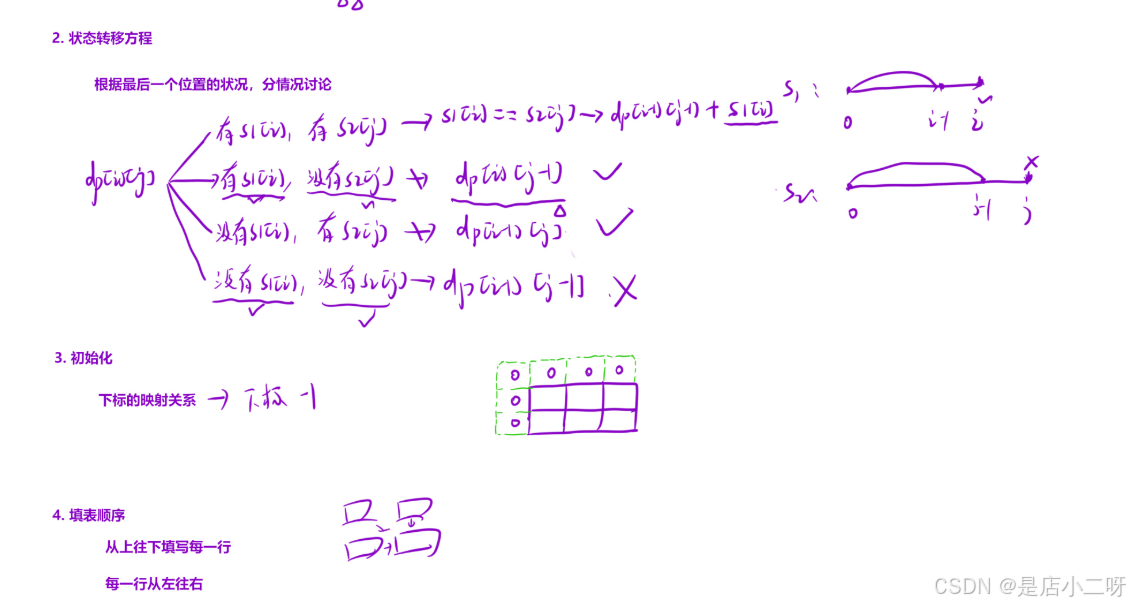 2. 状态转移方程
根据最后一个位置的状况，分情况讨论
dp[i][j]
有s1[i]，有s2[j] → s1[i] == s2[j] → dp[i-1][j-1] + s1[i]
有s1[i]，没有s2[j] → dp[i][j-1] ✓
没有s1[i]，有s2[j] → dp[i-1][j] ✓
没有s1[i]，没有s2[j] → dp[i-1][j-1] ×
s1:
0 i-1 i
s2:
0 j-1 j
3. 初始化
下标的映射关系 → 下标 -1
0 0 0 0
0
0
4. 填表顺序
从上往下填写每一行
每一行从左往右
CSDN @是店小二呀